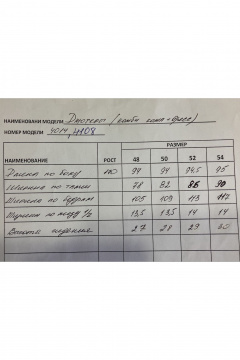 НАИМЕНОВАНИ МОДЕЛИ Джоггеры (комби кожа+флис)
НОМЕР МОДЕЛИ 4014, 4108
РАЗМЕР
НАИМЕНОВАНИЕ РОСТ 48 50 52 54
Длина по боку 94 94 94,5 95
Ширина по талии 78 82 86 90
Ширина по бедрам 105 109 113 117
Ширина по низу ½ 13,5 13,5 14 14
Высота сидения 27 28 29 30